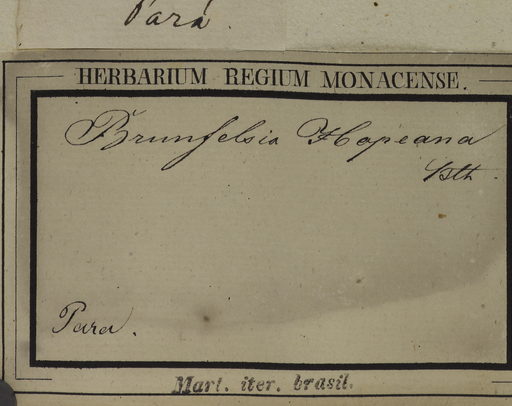 Pará.
HERBARIUM REGIUM MONACENSE.
Brunfelsia Hopeana
Bth.
Para.
Mart. iter. brasil.